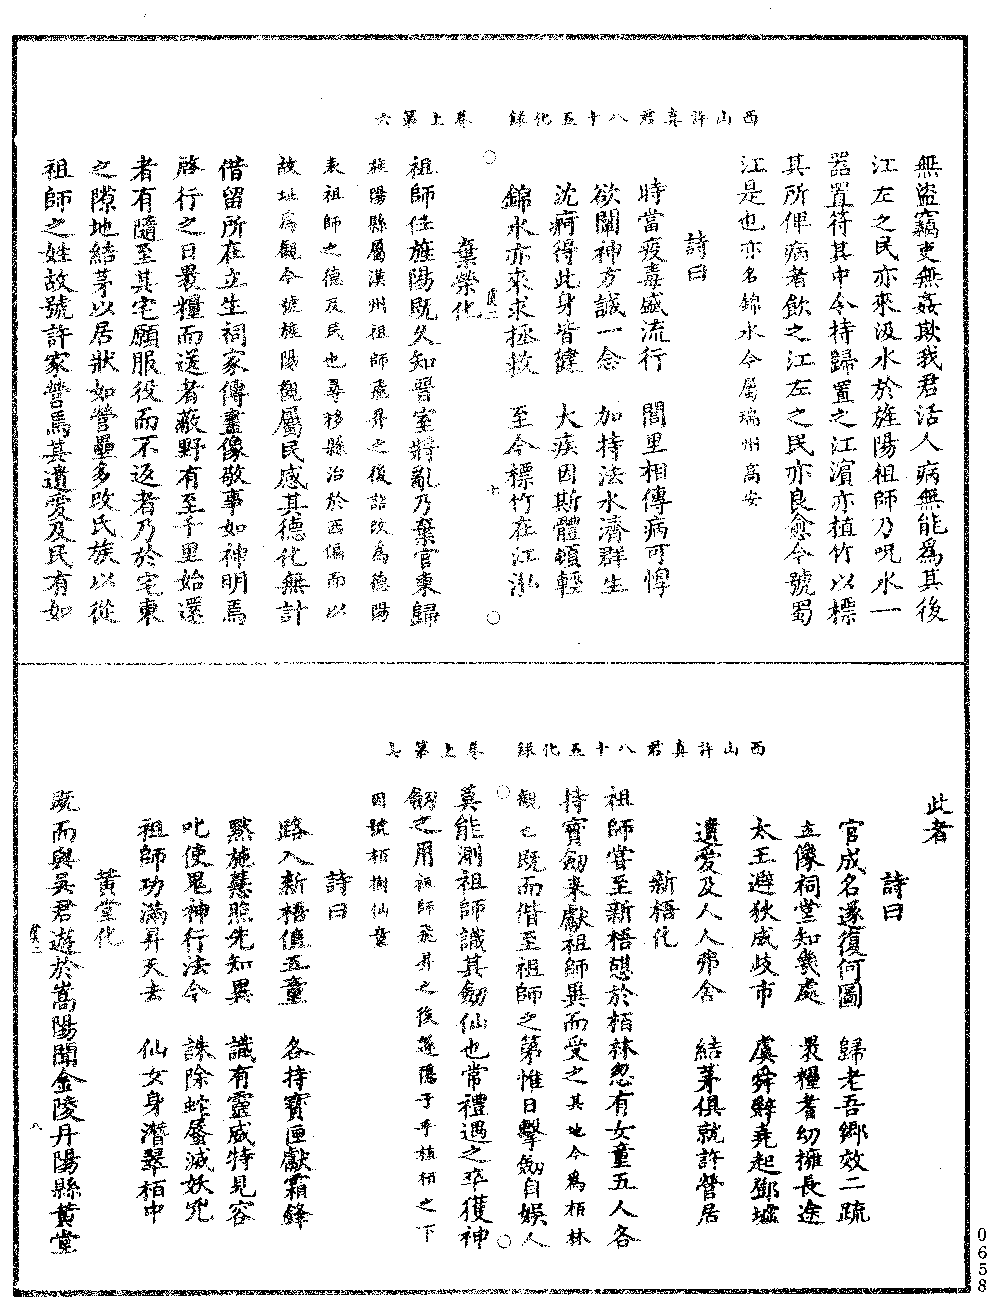 西山許真君八十五化錄　卷上第六
無盜竊吏無姦欺我君活人病無能為其後
江左之民亦來汲水於旌陽祖師乃呪水一
器置符其中令持歸置之江濱亦植竹以標
其所俾病者飲之江左之民亦良愈今號蜀
江是也亦名錦水今屬瑞州高安
詩曰
時當疫毒盛流行　閭里相傳病可惸
欲闡神方誠一念　加持法水濟群生
沈痾得此身皆健　大疾因斯體頓輕
錦水亦來求拯救　至今標竹在江泓
棄榮化
祖師任旌陽既久知晉室將亂乃棄官東歸
旌陽縣屬漢州祖師飛昇之後詔改為德陽
表祖師之德及民也尋移縣治於西偏而以
故址為觀今號旌陽觀屬民感其德化無計
借留所在立生祠家傳畫像敬事如神明焉
啓行之日褁糧而送者蔽野有至千里始還
者有隨至其宅願服役而不返者乃於宅東
之隙地結茅以居狀如營壘多改氏族以從
祖師之姓故號許家營焉其遺愛及民有如
西山許真君八十五化錄　卷上第七
此者
詩曰
官成名遂復何圖　歸老吾鄉效二疏
立像祠堂知幾處　褁糧耆幼擁長途
太王避狄成岐市　虞舜辭堯起鄧墟
遺愛及人人弗舍　結茅俱就許營居
新梧化
祖師嘗至新梧憩於栢林忽有女童五人各
持寶劒來獻祖師異而受之其地今為栢林
觀已既而偕至祖師之第惟日擊劒自娛人
莫能測祖師識其劒仙也常禮遇之卒獲神
劒之用祖師飛昇之後遂隱于手植栢之下
因號栢樹仙童
詩曰
路入新梧值五童　各持寶匣獻霜鋒
黙施慧照先知異　識有靈威特見容
叱使鬼神行法令　誅除蛇蜃滅妖兇
祖師功滿昇天去　仙女身潛翠栢中
黃堂化
既而與吳君遊於嵩陽聞金陵丹陽縣黃堂
0658